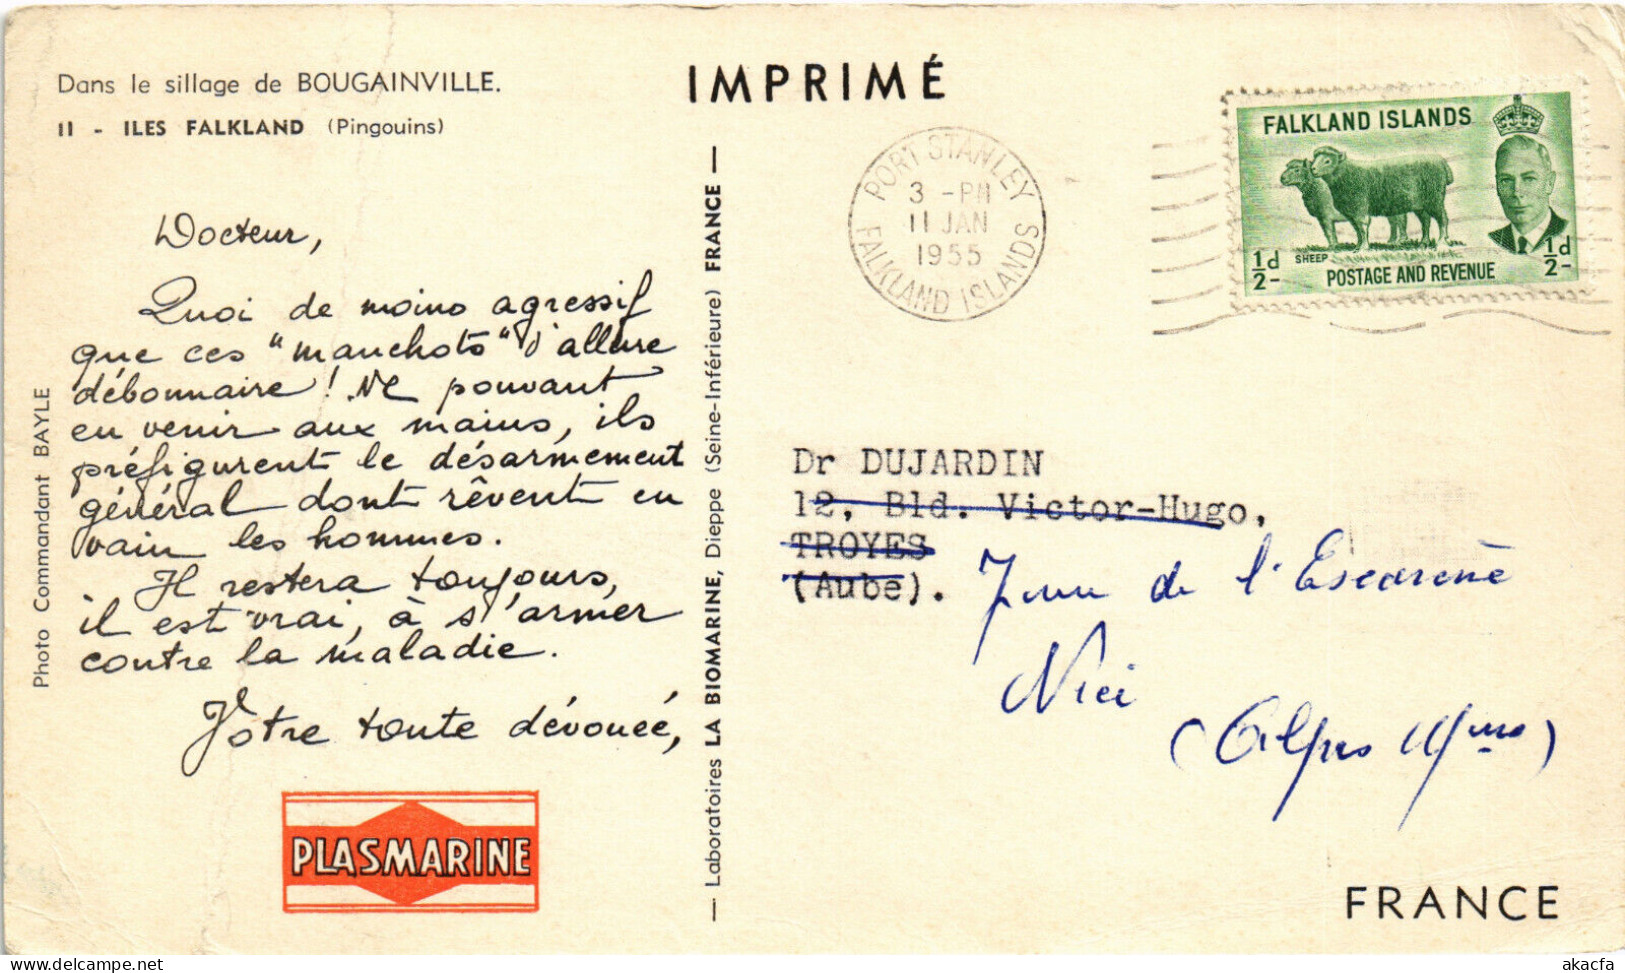 Dans le sillage de BOUGAINVILLE.
II - ILES FALKLAND (Pingouins)
IMPRIMÉ
PORT STANLEY
3 - PM
11 JAN
1955
FALKLAND ISLANDS
FALKLAND ISLANDS
SHEEP
½d
½d
POSTAGE AND REVENUE
Docteur,
Quoi de moins agressif
que ces "manchots" d'allure
débonnaire ! Ne pouvant
en venir aux mains, ils
préfigurent le désarmement
général dont rêvent en
vain les hommes.
Il restera toujours,
il est vrai, à s'armer
contre la maladie.
Votre toute dévouée,
PLASMARINE
Photo Commandant BAYLE
— Laboratoires LA BIOMARINE, Dieppe (Seine-Inférieure) FRANCE —
Dr DUJARDIN
12, Bld. Victor-Hugo,
TROYES
(Aube).
de l'Escarène
Nice
(Alpes Mmes)
FRANCE
akacfa